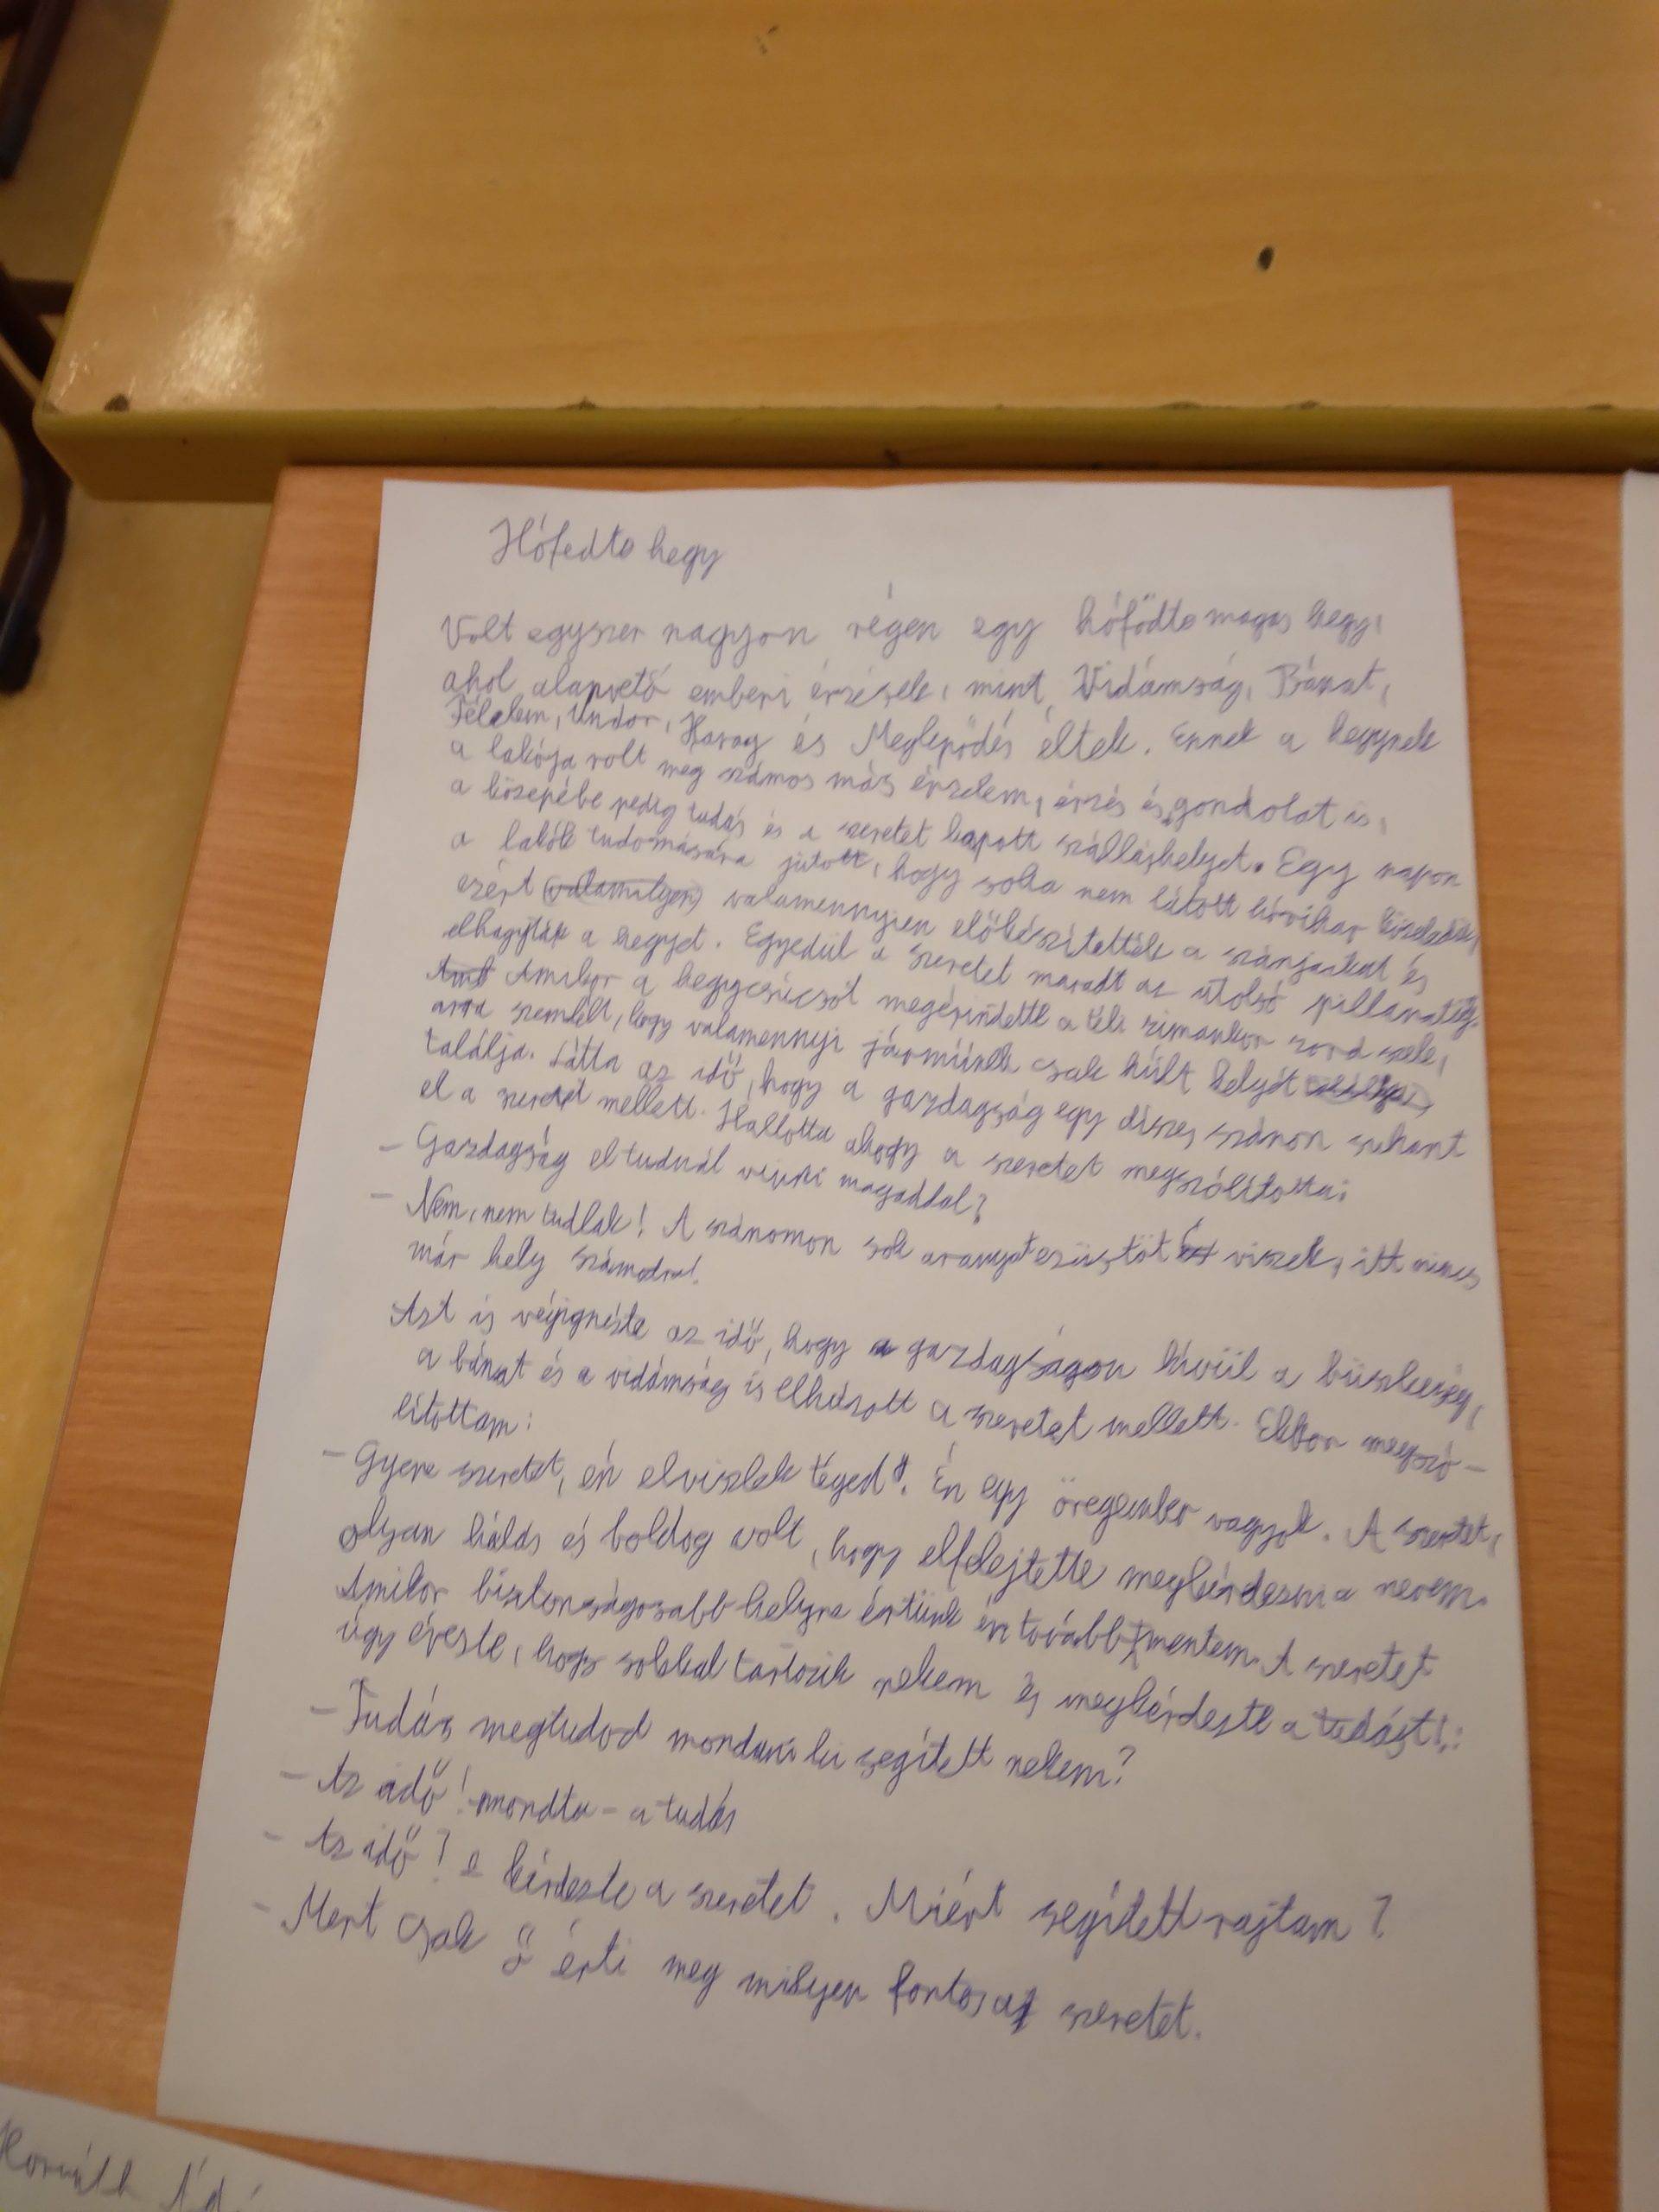 Hófedte hegy
Volt egyszer nagyon régen egy hófödte magas hegy,
ahol alapvető emberi érzések, mint Vidámság, Bánat,
Félelem, Undor, Harag és Meglepődés éltek. Ennek a hegynek
a lakója volt meg számos más érzelem, érzés és gondolat is,
a közepébe pedig tudás és a szeretet kapott szálláshelyet. Egy napon
a lakók tudomására jutott, hogy soha nem látott hóvihar közeledik,
ezért (valamilyen) valamennyien előkészítették a szánjaikat és
elhagyták a hegyet. Egyedül a szeretet maradt az utolsó pillanatig.
Amikor a hegycsúcsót megérindette a téli zimankor zord szele,
arra szemlélt, hogy valamennyi járműnek csak hült helyét
találja. Látta az idő, hogy a gazdagság egy díszes szánon suhant
el a szeretet mellett. Hallotta ahogy a szeretet megszólította:
- Gazdagság el tudnál vinni magaddal?
- Nem, nem tudlak! A szánomon sok aranyat ezüstöt viszek, itt nincs
már hely számodra!
Azt is végignézte az idő, hogy a gazdagságon kívül a büszkeség,
a bánat és a vidámság is elhúzott a szeretet mellett. Ekkor megszó-
lítottam:
- Gyere szeretet, én elviszlek téged. Én egy öregember vagyok. A szeretet,
olyan hálás és boldog volt, hogy elfelejtette megkérdezni a nevem.
Amikor biztonságosabb helyre értünk én tovább mentem. A szeretet
úgy érezte, hogy sokkal tartozik nekem és megkérdezte a tudást!:
- Tudás megtudod mondani ki segített nekem?
- Az idő! - mondta - a tudás
- Az idő? kérdezte a szeretet. Miért segített rajtam?
- Mert csak ő érti meg milyen fontos az szeretet.
Horváth Ád